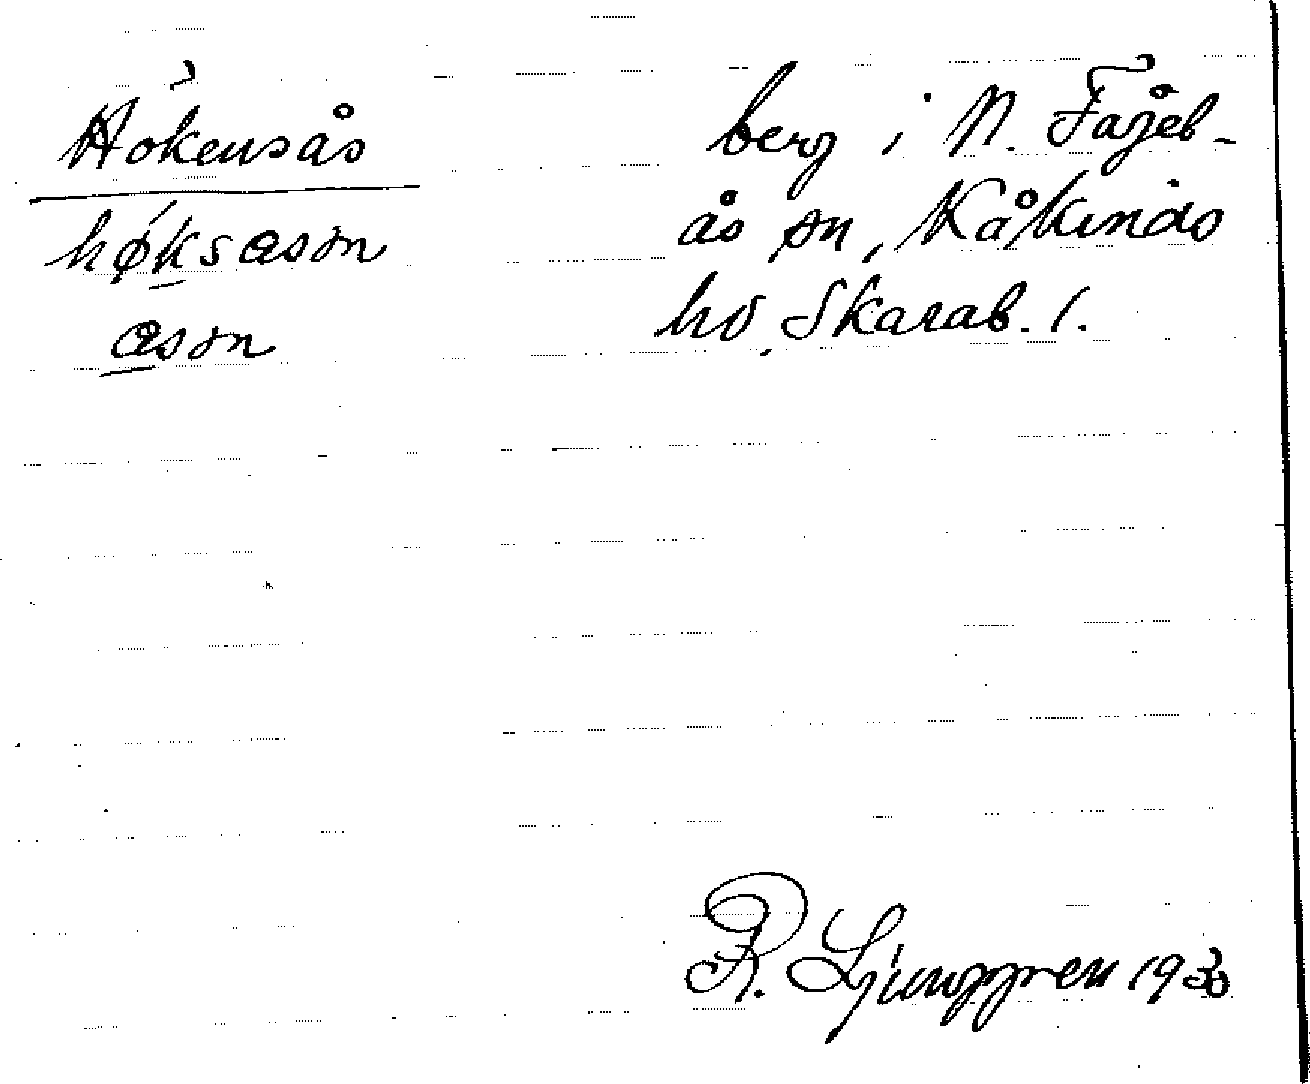 Hökensås
høksåsən
åsən
berg i N. Fågel-
ås sn, Kåkinds
hd, Skarab. l.
R. Ljunggren 1930